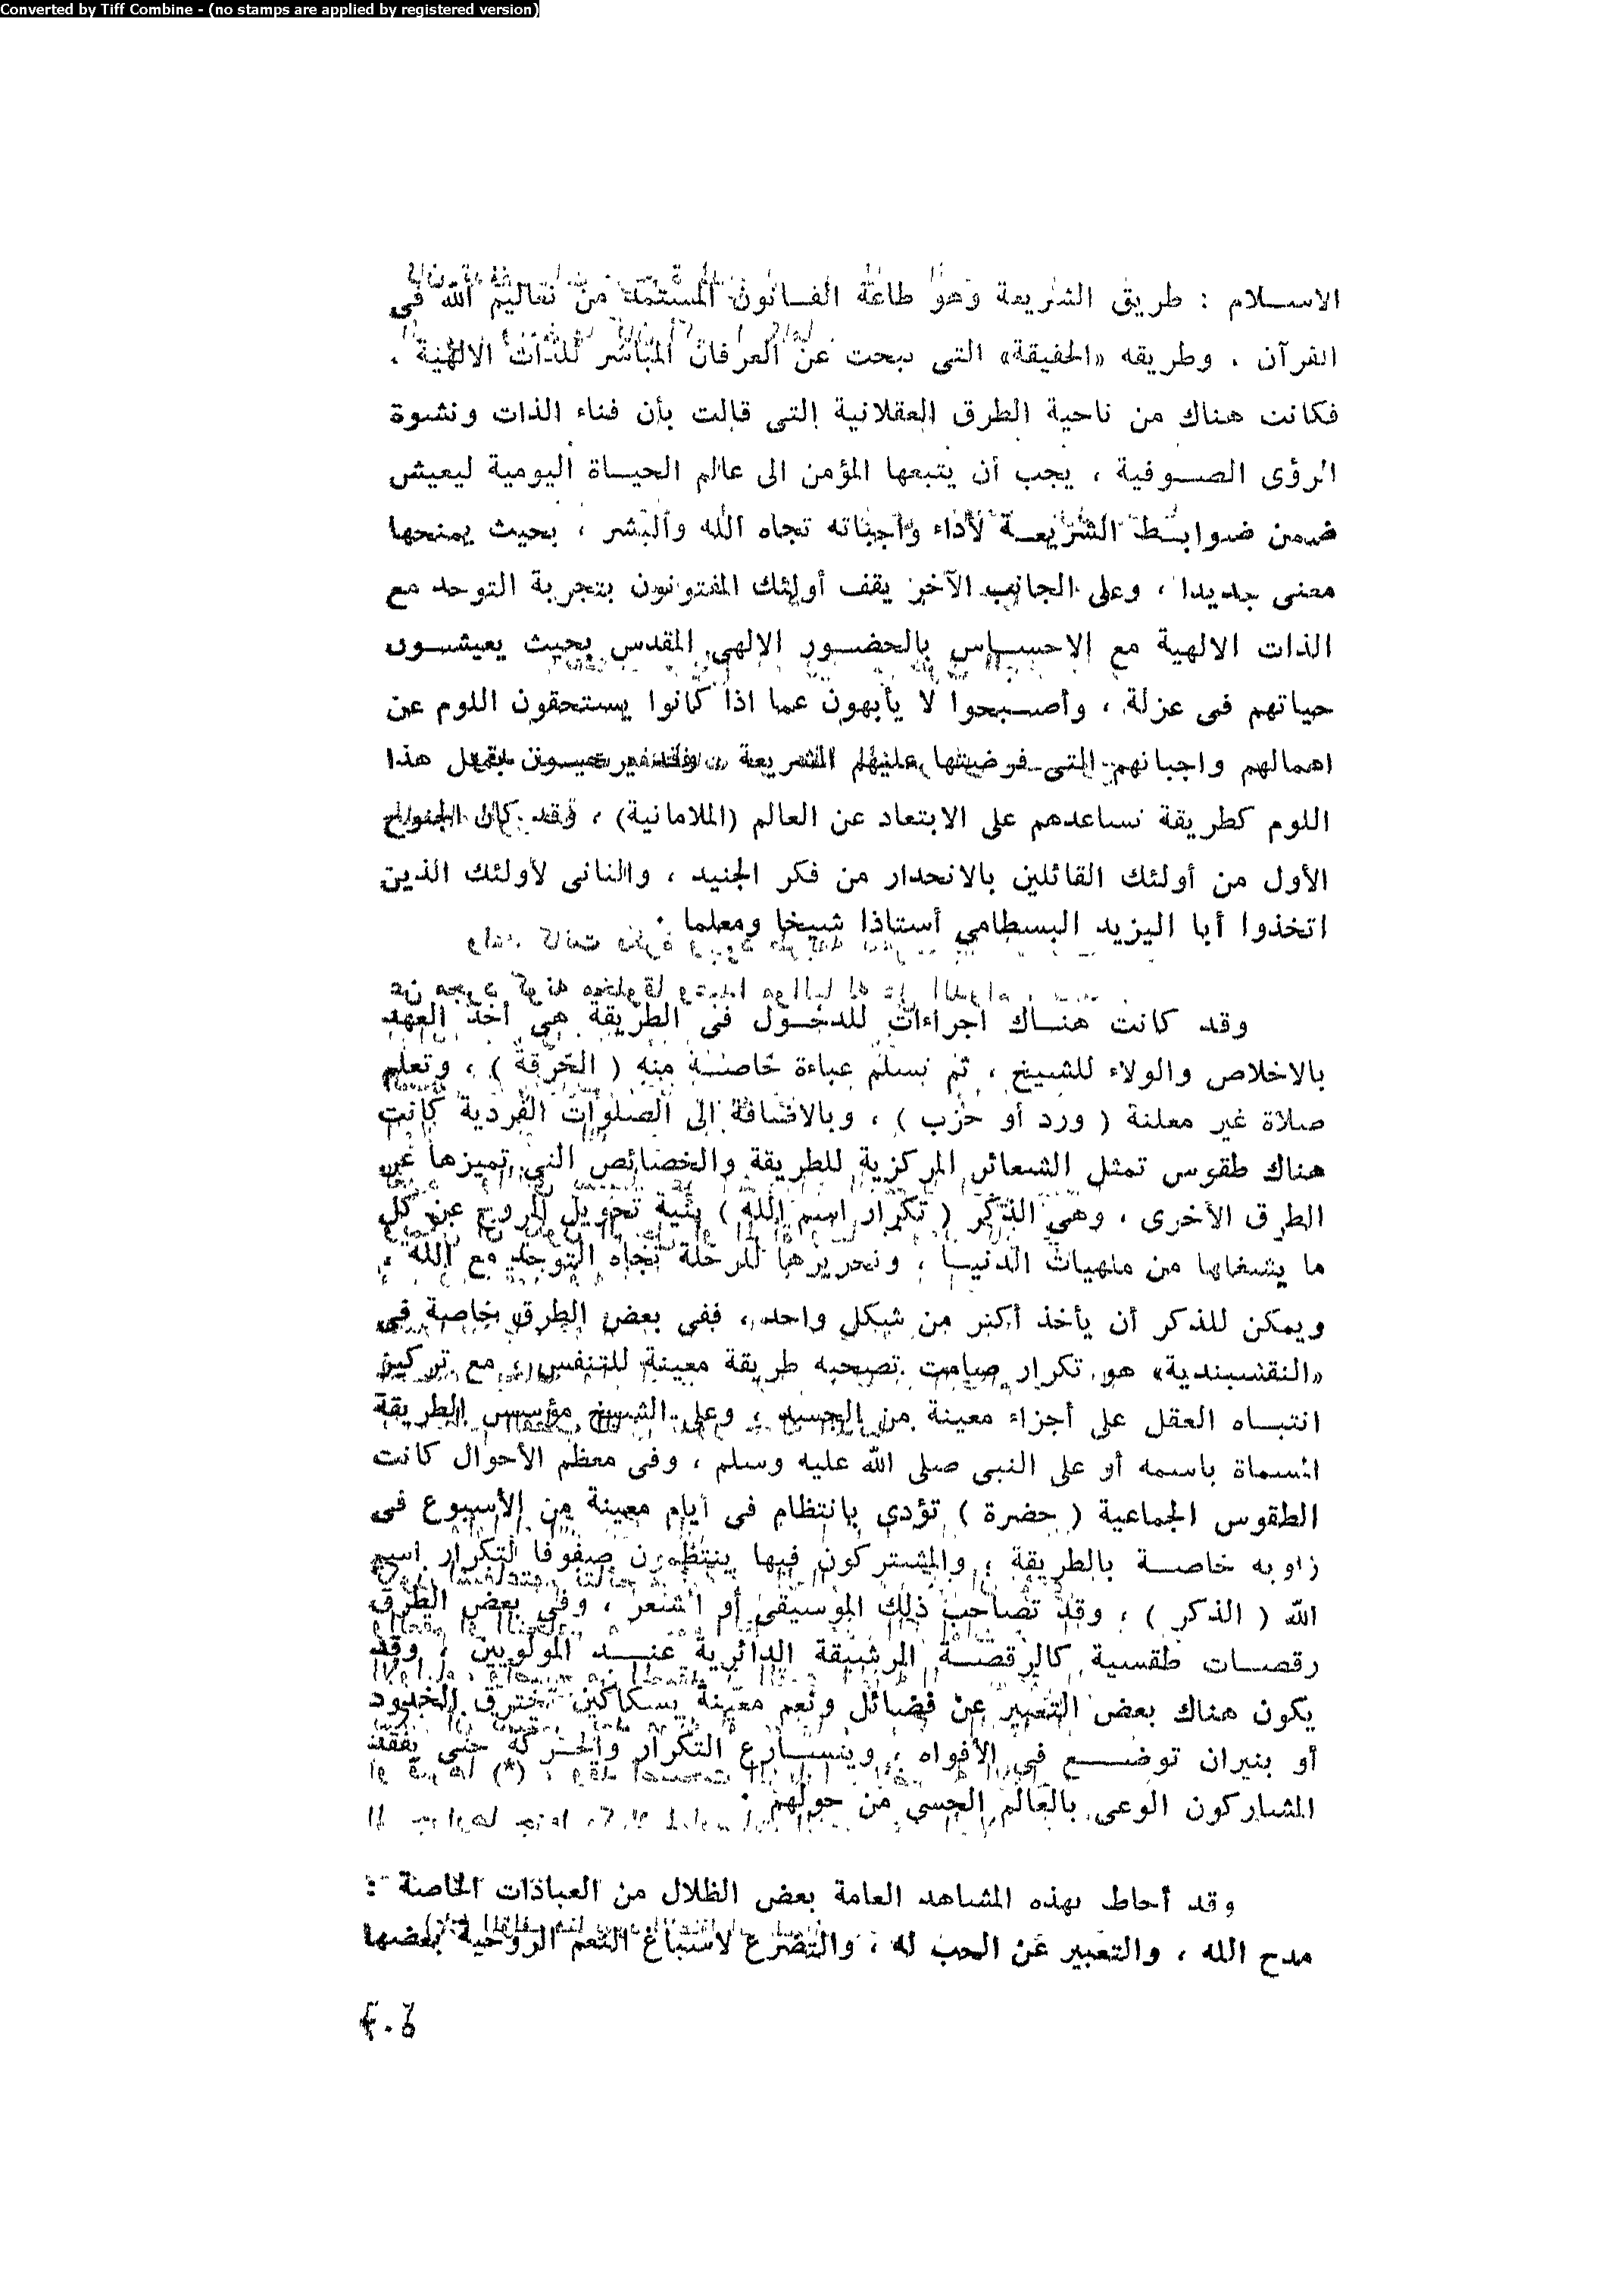 Converted by Tiff Combine - (no stamps are applied by registered version)
الاسلام : طريق الشريعة وهو طاعة القانون المستمد من تعاليم الله فى
القرآن ، وطريقه «الحقيقة» التى تبحث عن العرفان المباشر للذات الالهية .
فكانت هناك من ناحية الطرق العقلانية التى قالت بأن فناء الذات ونشوة
الرؤى الصوفية ، يجب أن يتبعها المؤمن الى عالم الحياة اليومية ليعيش
ضمن ضوابط الشريعة لأداء واجباته تجاه الله والبشر ، بحيث يمنحها
معنى جديدا ، وعلى الجانب الآخر يقف أولئك المفتونون بتجربة التوحد مع
الذات الالهية مع الاحساس بالحضور الالهى المقدس بحيث يعيشون
حياتهم فى عزلة ، وأصبحوا لا يأبهون عما اذا كانوا يستحقون اللوم عن
اهمالهم واجباتهم التى فرضتها عليهم الشريعة هذا
اللوم كطريقة تساعدهم على الابتعاد عن العالم (الملامانية) ، وقد كان الجنوح
الأول من أولئك القائلين بالانحدار من فكر الجنيد ، والثانى لأولئك الذين
اتخذوا أبا اليزيد البسطامي أستاذا شيخا ومعلما .
وقد كانت هناك اجراءات للدخول فى الطريقة هى أخذ العهد
بالاخلاص والولاء للشيخ ، ثم تسلم عباءة خاصة منه ( الخرقة ) ، وتعلم
صلاة غير معلنة ( ورد أو حزب ) ، وبالاضافة الى الصلوات الفردية كانت
هناك طقوس تمثل الشعائر المركزية للطريقة والخصائص التى تميزها عن
الطرق الأخرى ، وهى الذكر ( تكرار اسم الله ) بنية تحويل الروح عن كل
ما يشغلها من ملهيات الدنيا ، وتحريرها للرحلة تجاه التوحد مع الله .
ويمكن للذكر أن يأخذ أكثر من شكل واحد ، ففى بعض الطرق خاصة فى
«النقشبندية» هو تكرار صامت تصحبه طريقة معينة للتنفس ، مع تركيز
انتباه العقل على أجزاء معينة من الجسد ، وعلى الشيخ مؤسس الطريقة
المسماة باسمه أو على النبى صلى الله عليه وسلم ، وفى معظم الأحوال كانت
الطقوس الجماعية ( حضرة ) تؤدى بانتظام فى أيام معينة من الأسبوع فى
زاويه خاصة بالطريقة ، والمشتركون فيها ينتظمون صفوفا لتكرار اسم
الله ( الذكر ) ، وقد تصاحب ذلك الموسيقى أو الشعر ، وفى بعض الطرق
رقصات طقسية كالرقصة الرشيقة الدائرية عند المولويين ، وقد
يكون هناك بعض التعبير عن فضائل ونعم معينة بسكاكين تخترق الخدود
أو بنيران توضع فى الأفواه ، ويتسارع التكرار والحركة حتى يفقد
المشاركون الوعى بالعالم الحسى من حولهم .
وقد أحاط بهذه المشاهد العامة بعض الظلال من العبادات الخاصة :
مدح الله ، والتعبير عن الحب له ، والتضرع لاسباغ النعم الروحية بعضها